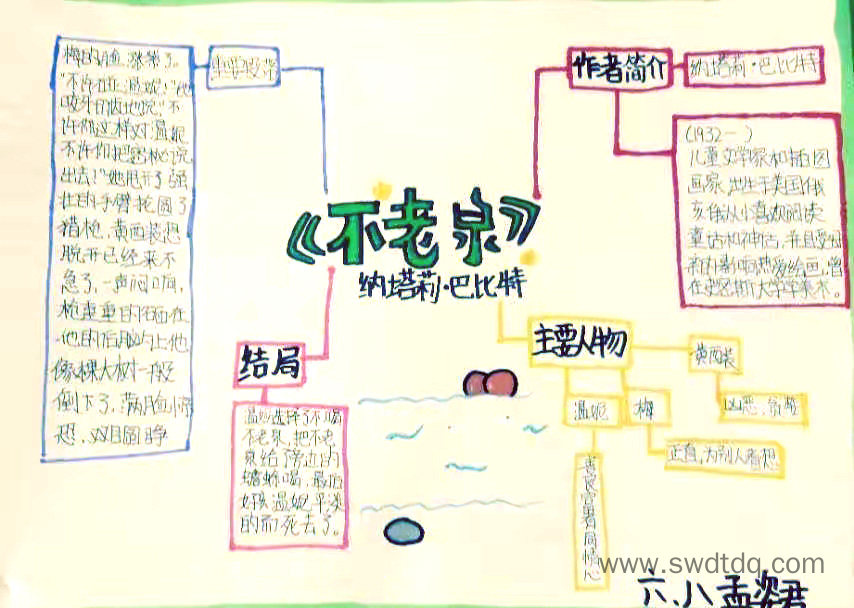 《不老泉》
纳塔莉·巴比特
作者简介
纳塔莉·巴比特
(1932一)
儿童文学家和插图
画家,出生于美国俄
亥俄从小喜欢阅读
童话和神话,并且受母
亲的影响热爱绘画,曾
在史密斯大学学美术。
主要人物
黄西装
凶恶,
梅
正直,为别人着想
温妮
善良富有同情心
结局
温妮选择了不喝
不老泉,把不老
泉给旁边的
蟾蜍喝,最后
温妮平淡
的而死去了。
梅的脸涨紫了。
咬牙切齿地说,"不
许你这样对温妮
不许你把秘密说
出去!"她甩开了强
壮的手臂抡圆了
猎枪,黄西装想
脱开已经来不
急了,一声闷响,
枪重重的砸在
他的后脑勺上他
像棵大树一般
倒下了,满脸惊
恐,双目圆睁
www.swdtdq.com
六.八孟姿君